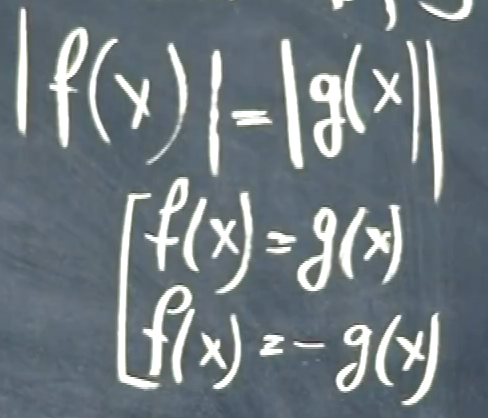 |f(x)|=|g(x)|
[f(x)=g(x)
f(x)=-g(x)